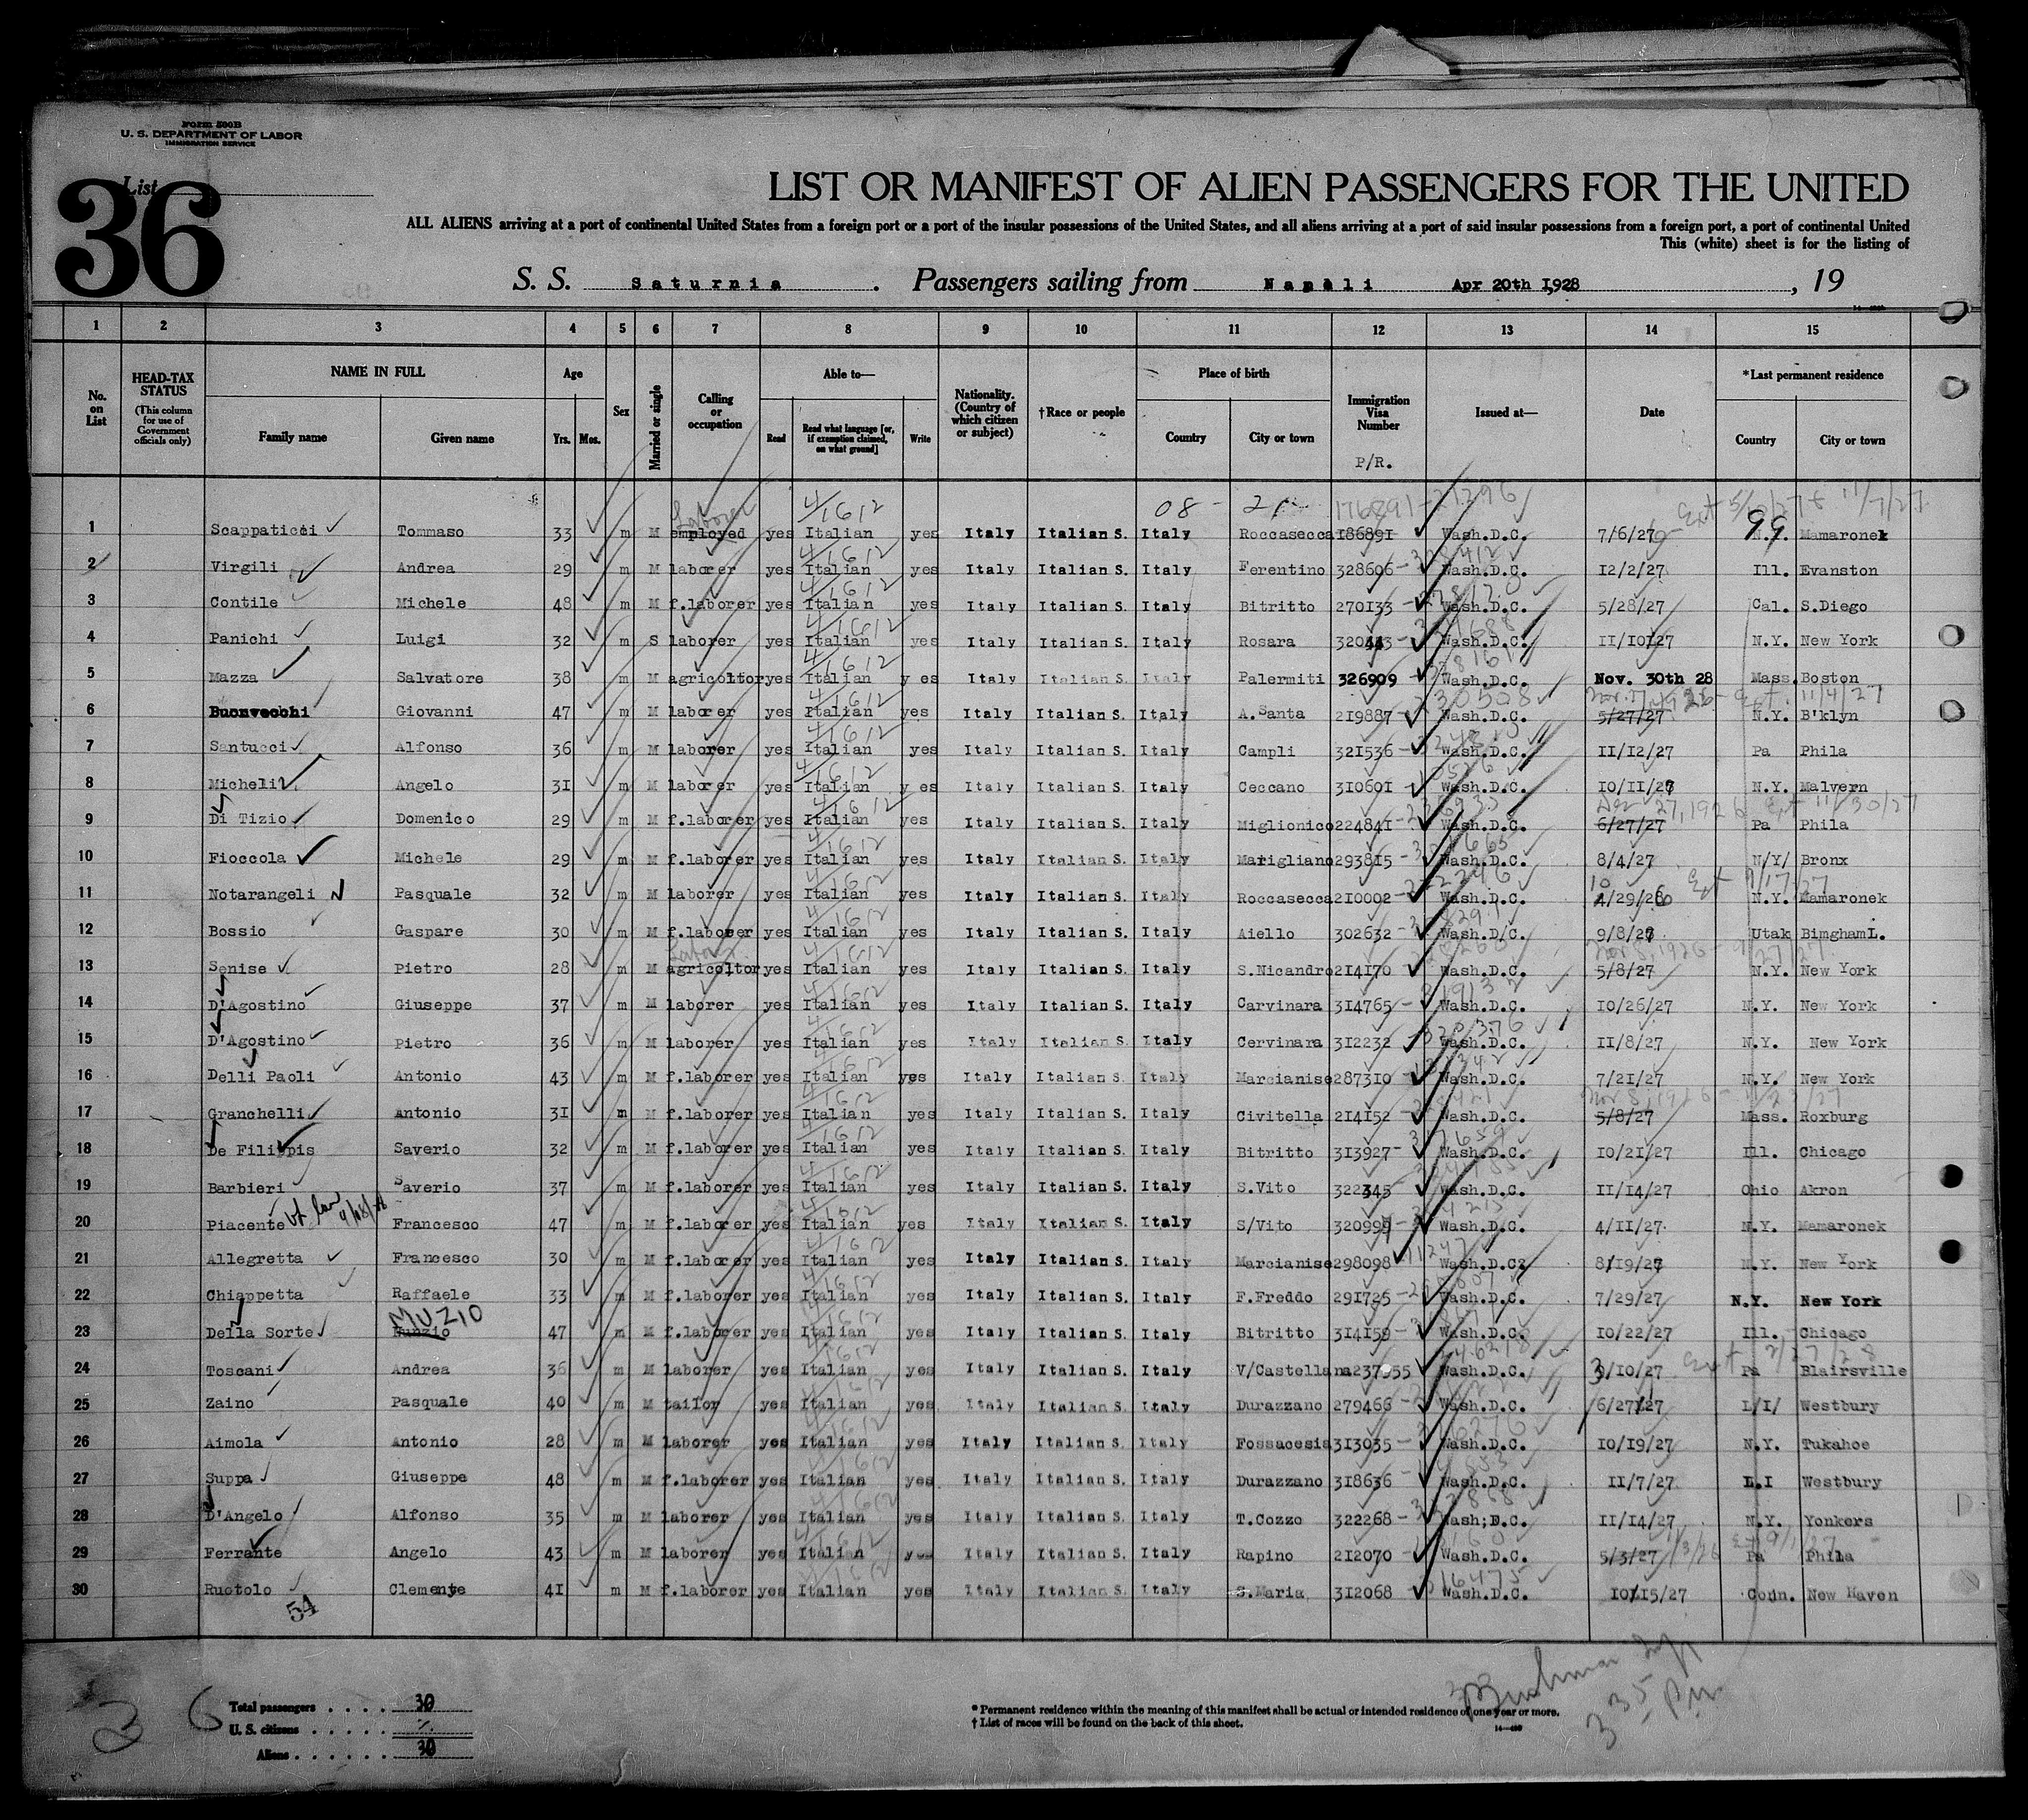 Form 500B
U. S. DEPARTMENT OF LABOR
IMMIGRATION SERVICE
List
36
LIST OR MANIFEST OF ALIEN PASSENGERS FOR THE UNITED
ALL ALIENS arriving at a port of continental United States from a foreign port or a port of the insular possessions of the United States, and all aliens arriving at a port of said insular possessions from a foreign port, a port of continental United
This (white) sheet is for the listing of
S. S. Saturnia . Passengers sailing from Napoli Apr 20th 1928 , 19
1 2 3 4 5 6 7 8 9 10 11 12 13 14 15
No. on List HEAD-TAX STATUS (This column for use of Government officials only) NAME IN FULL Family name Given name Age Yrs. Mos. Sex Married or single Calling or occupation Able to— Read Read what language [or, if exemption claimed, on what ground] Write Nationality. (Country of which citizen or subject) †Race or people Place of birth Country City or town Immigration Visa Number P/R. Issued at— Date *Last permanent residence Country City or town
08 - 21
1 Scappaticci Tommaso 33 m M Laborer employed yes Italian yes Italy Italian S. Italy Roccasecca 186891 Wash.D.C. 7/6/27 99 N.Y. Mamaronek
2 Virgili Andrea 29 m M laborer yes Italian yes Italy Italian S. Italy Ferentino 328606 Wash.D.C. 12/2/27 Ill. Evanston
3 Contile Michele 48 m M f.laborer yes Italian yes Italy Italian S. Italy Bitritto 270133 Wash.D.C. 5/28/27 Cal. S.Diego
4 Panichi Luigi 32 m S laborer yes Italian yes Italy Italian S. Italy Rosara 320443 Wash.D.C. 11/10127 N.Y. New York
5 Mazza Salvatore 38 m M agricoltor yes Italian y es Italy Italian S. Italy Palermiti 326909 Wash.D.C. Nov. 30th 28 Mass. Boston
6 Buonvecchi Giovanni 47 m M laborer yes Italian yes Italy Italian S. Italy A.Santa 219887 Wash.D.C. 5/27/27 N.Y. B'klyn
7 Santucci Alfonso 36 m M laborer yes Italian yes Italy Italian S. Italy Campli 321536 Wash.D.C. 11/12/27 Pa Phila
8 Micheli Angelo 31 m M laborer yes Italian y es Italy Italian S. Italy Ceccano 310601 Wash.D.C. 10/11/27 N.Y. Malvern
9 Di Tizio Domenico 29 m M f.laborer yes Italian yes Italy Italian S. Italy Miglionico 224841 Wash.D.C. 6/27/27 Pa Phila
10 Fioccola Michele 29 m M f.laborer yes Italian yes Italy Italian S. Italy Marigliano 293815 Wash.D.C. 8/4/27 N/Y/ Bronx
11 Notarangeli Pasquale 32 m M laborer yes Italian yes Italy Italian S. Italy Roccasecca 210002 Wash.D.C. 4/29/26 N.Y. Mamaronek
12 Bossio Gaspare 30 m M f.laborer yes Italian yes Italy Italian S. Italy Aiello 302632 Wash.D/C. 9/8/27 Utak BimghamL.
13 Senise Pietro 28 m M Laborer agricoltor yes Italian yes Italy Italian S. Italy S.Nicandro 214170 Wash.D.C. 5/8/27 N.Y. New York
14 D'Agostino Giuseppe 37 m M laborer yes Italian yes Italy Italian S. Italy Carvinara 314765 Wash.D.C. 10/26/27 N.Y. New York
15 D'Agostino Pietro 36 m M laborer yes Italian yes Italy Italian S. Italy Cervinara 312232 Wash.D.C. 11/8/27 N.Y. New York
16 Delli Paoli Antonio 43 m M f.laborer yes Italian yes Italy Italian S. Italy Marcianise 287310 Wash.D.C. 7/21/27 N.Y. New York
17 Granchelli Antonio 31 m M f.laborer yes Italian yes Italy Italian S. Italy Civitella 214152 Wash.D.C. 5/8/27 Mass. Roxburg
18 De Filippis Saverio 32 m M f.laborer yes Italian yes Italy Italian S. Italy Bitritto 313927 Wash.D.C. 10/21/27 Ill. Chicago
19 Barbieri Saverio 37 m M f.laborer yes Italian yes Italy Italian S. Italy S.Vito 322345 Wash.D.C. 11/14/27 Ohio Akron
20 Piacente Francesco 47 m M f.laborer yes Italian yes Italy Italian S. Italy S/Vito 320999 Wash.D.C. 4/11/27 N.Y. Mamaronek
21 Allegretta Francesco 30 m M f.laborer yes Italian yes Italy Italian S. Italy Marcianise 298098 Wash.D.C. 8/19/27 N.Y. New York
22 Chiappetta Raffaele 33 m M f.laborer yes Italian yes Italy Italian S. Italy F.Freddo 291725 Wash.D.C. 7/29/27 N.Y. New York
23 Della Sorte MUZIO Nunzio 47 m M f.laborer yes Italian yes Italy Italian S. Italy Bitritto 314159 Wash.D.C. 10/22/27 Ill. Chicago
24 Toscani Andrea 36 m M laborer yes Italian yes Italy Italian S. Italy V/Castellana Wash.D.C. 3/10/27 Pa Blairsville
25 Zaino Pasquale 40 m M tailor yes Italian yes Italy Italian S. Italy Durazzano 279466 Wash.D.C. 6/27/27 L/I/ Westbury
26 Aimola Antonio 28 m M laborer yes Italian yes Italy Italian S. Italy Fossacesia 313035 Wash.D.C. 10/19/27 N.Y. Tukahoe
27 Suppa Giuseppe 48 m M f.laborer yes Italian yes Italy Italian S. Italy Durazzano 318636 Wash.D.C. 11/7/27 L.I Westbury
28 D'Angelo Alfonso 35 m M laborer yes Italian yes Italy Italian S. Italy T.Cozzo 322268 Wash;D.C. 11/14/27 N.Y. Yonkers
29 Ferrante Angelo 43 m M laborer yes Italian yes Italy Italian S. Italy Rapino 212070 Wash.D.C. 5/3/27 Pa Phila
30 Ruotolo Clemente 41 m M f.laborer yes Italian yes Italy Italian S. Italy S.Maria 312068 Wash.D.C. 10/15/27 Conn. New Haven
54
3 35 P.M.
36
Total passengers . . . . 30
U. S. citizens . . . . .
Aliens . . . . . . 30
* Permanent residence within the meaning of this manifest shall be actual or intended residence of one year or more.
† List of races will be found on the back of this sheet.